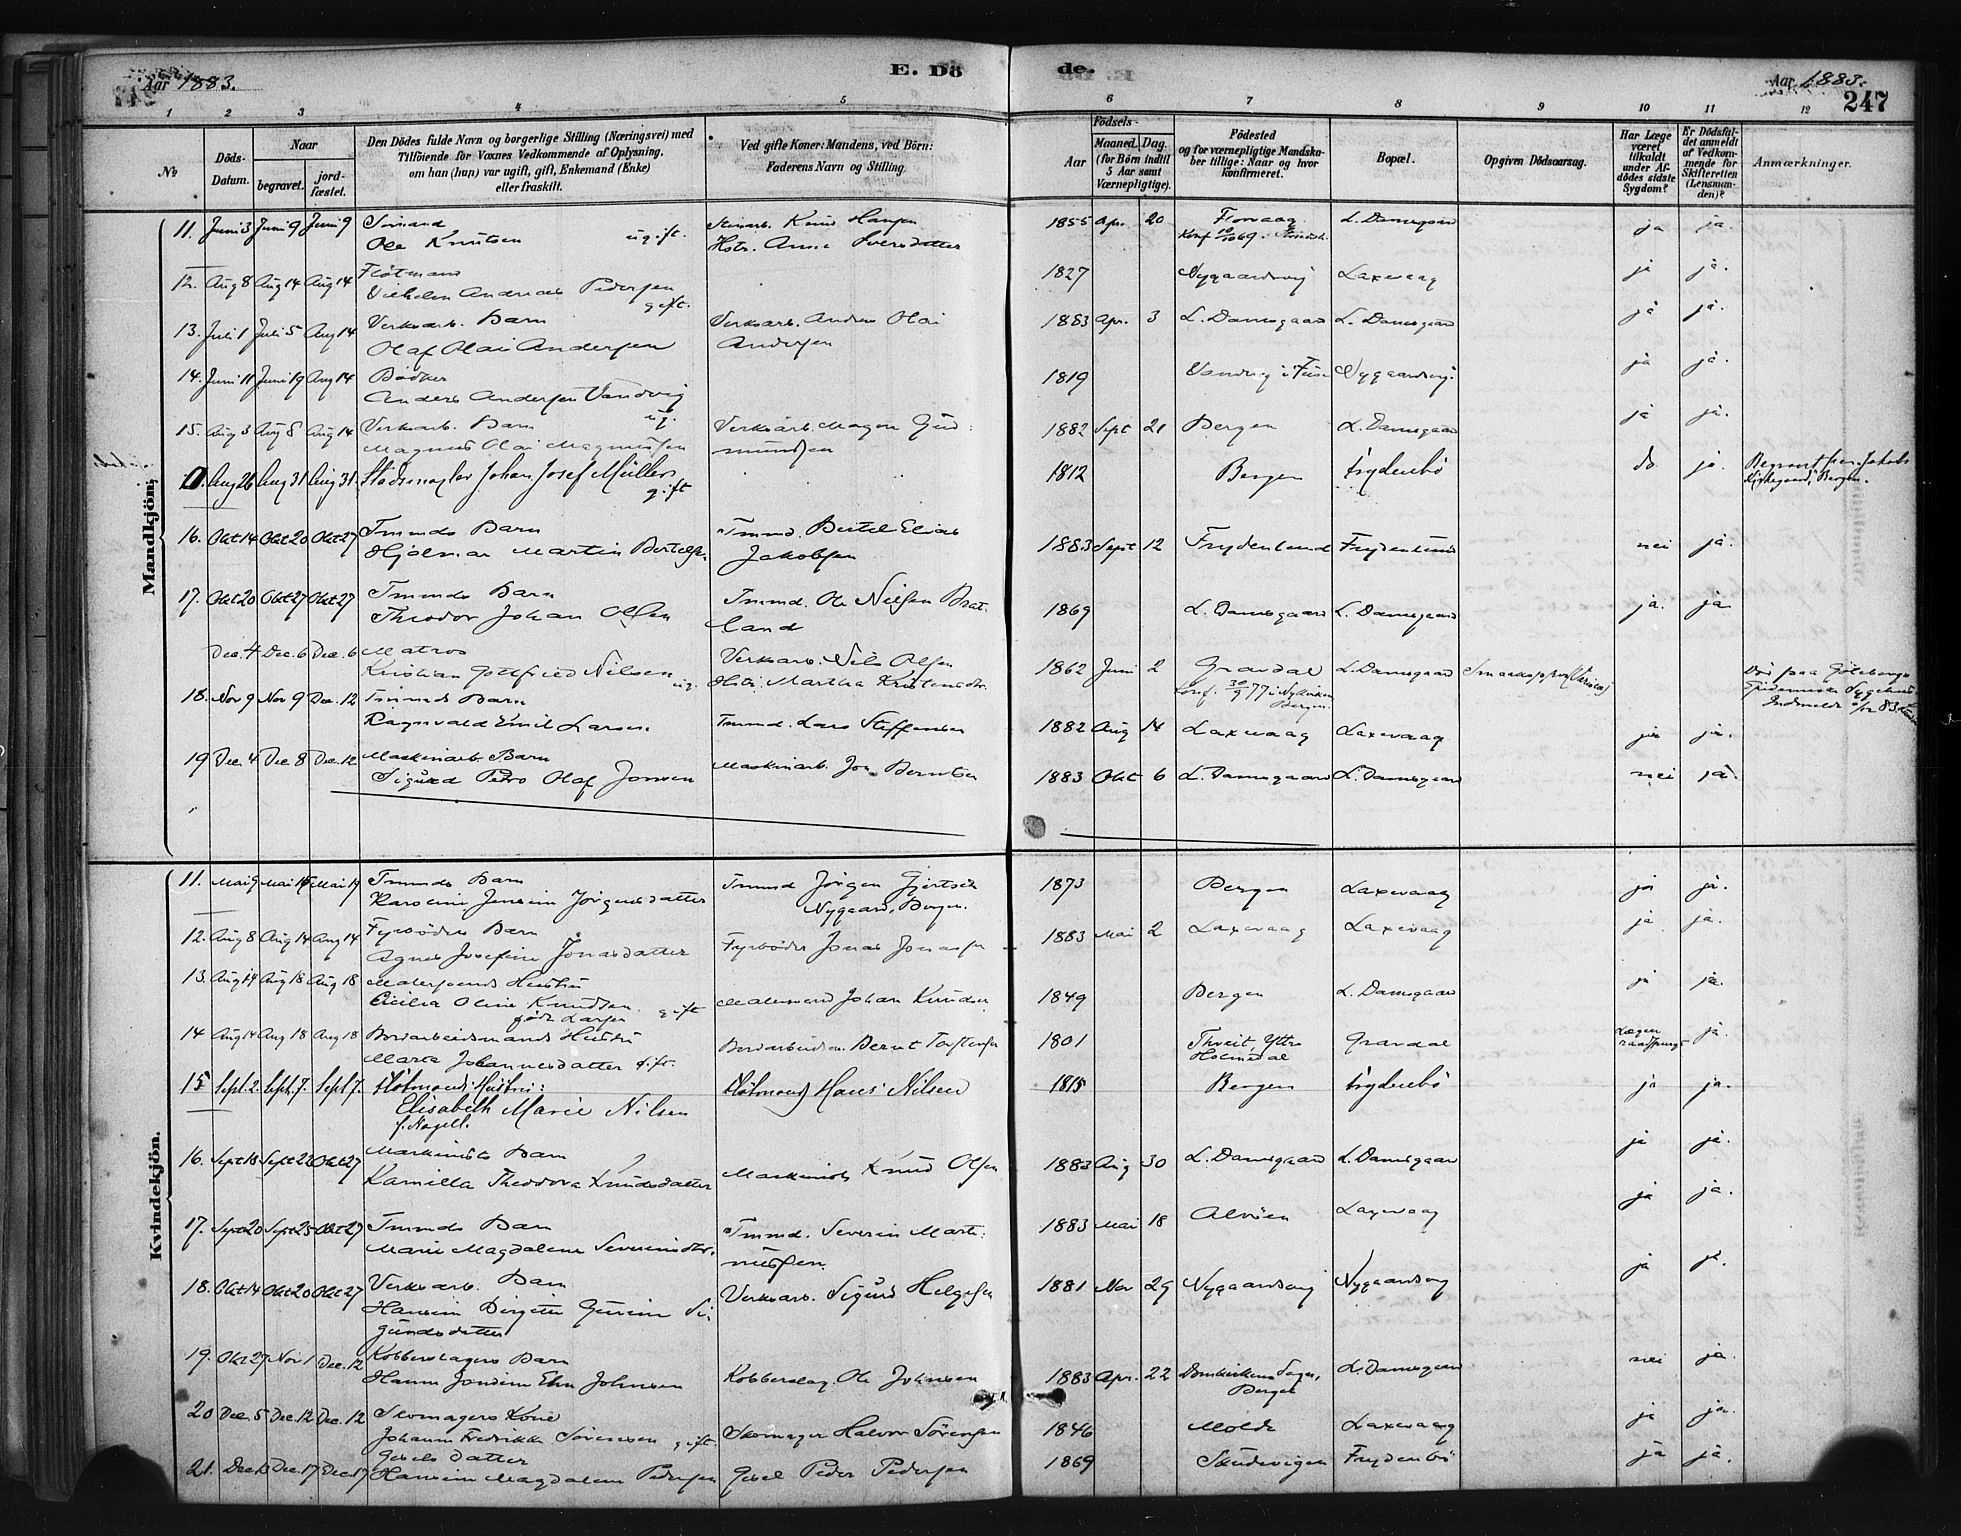 Aar 1883.
E. Dö
de.
Aar 1883.
247
1 2 3 4 5 6 7 8 9 10 11 12
No
Döds-
Datum.
Naar
begravet.
jord-
fæstet.
Den Dödes fulde Navn og borgerlige Stilling (Næringsvei) med
Tilföiende for Voxnes Vedkommende af Oplysning,
om han (hun) var ugift, gift, Enkemand (Enke)
eller fraskilt.
Ved gifte Koner: Mandens, ved Börn:
Faderens Navn og Stilling.
Födsels-
Aar
Maaned.
Dag.
(for Börn indtil
5 Aar samt
Værnepligtige).
Födested
og for værnepligtige Mandska-
ber tillige: Naar og hvor
konfirmeret.
Bopæl.
Opgiven Dödsaarsag.
Har Læge
været
tilkaldt
under Af-
dödes sidste
Sygdom?
Er Dödsfal-
det anmeldt
af Vedkom-
mende for
Skifteretten
(Lensman-
den)?
Anmærkninger.
Mandkjön.
11. Juni 3 Juni 9 Juni 9 Sömand Stenarb. Knud Hansen 1855 Apr. 20 L. Damsgaard ja ja.
Ole Knutsen ugift. Hstr. Anna Iversdatter
12. Aug 8 Aug 14 Aug 14 Flötmand 1827 Nygaardsvig Laxevaag ja ja.
Vilhelm Andreas Pedersen gift.
13. Juli 1 Juli 5 Aug 14 Verksarb. Barn Verksarb. Andreas Olai 1883 Apr. 3 L. Damsgaard L. Damsgaard ja ja.
Olaf Olai Andersen Andersen
14. Juni 11 Juni 19 Aug 14 Bödker 1819 Vandvig i Fuse Nygaardsvig ja ja.
Anders Andersen Vandvig ug.
15. Aug 3 Aug 8 Aug 14 Verksarb. Barn Verksarb. Magne Gud- 1882 Sept 21 Bergen L. Damsgaard ja ja.
Magnus Olai Magnussen mundsen
0. Aug 26 Aug 31 Aug 31. Johan Josef Müller gift 1812 Bergen Frydenbö do ja. Begravet paa Jakobs
Kirkegaard, Bergen.
16. Okt 14 Okt 20 Okt 27 Tmmds Barn Tmmd. Bertel Elias 1883 Sept 12 Frydenlund Frydenlund nei ja.
Hjalmar Martin Bertelsen Jakobsen
17. Okt 20 Okt 27 Okt 27 Tmmds Barn Tmmd. Ole Nielsen Brat- 1869 L. Damsgaard L. Damsgaard ja. ja.
Theodor Johan Olsen land
Dec. 4 Dec. 6 Dec. 6 Matros Verksarb. Nils Olsen 1862 Juni 2 Gravdal L. Damsgaard Död paa Göteborgs
Kristian Gottfried Nilsen ug. Hstr. Martha Kristensdtr. Konf. 30/9 77 i Nykirken
Bergen.
18. Nov 9 Nov 9 Dec. 12 Tmmds Barn
Ragnvald Emil Larsen. Tmmd. Lars Steffensen 1882 Aug 14 Laxevaag Laxevaag ja ja.
19 Dec. 4 Dec 8 Dec. 12 Maskinarb. Barn Maskinarb. Jon Berntsen 1883 Okt 6 L. Damsgaard L. Damsgaard nei ja.
Sigurd Petro Olaf Jonsen
Kvindekjön.
11. Mai 9 Mai 14 Mai 19 Tmmds Barn Tmmd Jörgen Gjertsen 1873 Bergen Laxevaag ja ja.
Karoline Jensine Jörgensdatter Nygaard, Bergen.
12. Aug 8 Aug 14 Aug 14 Fyrböders Barn Fyrböder Jonas Jonassen 1883 Mai 2 Laxevaag Laxevaag ja ja.
Agnes Josefine Jonasdatter
13. Aug 14 Aug 18 Aug 18 Matersmands Hustru 1849 Bergen L. Damsgaard ja ja.
Cecilia Oline Knudsen gift Johan Knudsen
födt Larsen
14 Aug 14 Aug 18 Aug 18 Bordarbeidsmands Hustru Bernt Torstensen 1801 Thveit, Yttre Gravdal Lægen ja
Marta Johannesdatter gift. Holmedal raadspurgt
15 Sept. 2. Sept. 7. Sept 7. Flötmands Hustru: Flötmand Hans Nilsen 1815 Bergen Frydenbö ja ja.
Elisabeth Marie Nilsen
f. Nagell.
16. Sept 18 Sept 22 Okt 27 Maskinists Barn Maskinist Knud Olsen 1883 Aug 30 L. Damsgaard L. Damsgaard ja ja.
Kamilla Theodora Knudsdatter
17. Sept 20 Sept 25 Okt 27 Tmmds Barn Tmmd. Severin Marti- 1883 Mai 18 Alvöen Laxevaag ja ja.
Marie Magdalene Severinsdtr. nussen.
18. Okt 14 Okt 20 Okt 27 Verksarb. Barn Verksarb. Sigurd Helgesen 1881 Nov 29 Nygaardsvig Nygaardsvig ja ja.
Hansine Birgitte Gurine Si-
gurdsdatter
19. Okt 27 Nov 1 Dec. 12 Kobberslagers Barn Kobberslag. Ole Johnsen 1883 Apr. 22 Domkirkens Sogn, L. Damsgaard nei ja.
Hanna Johnsen Bergen
20 Dec. 5 Dec. 12 Dec. 12 Skomagers Kone Skomager Halvor Sörensen 1846 Molde Laxevaag ja ja.
Johanne Fredrikke Sörensen gift.
21. Dec 13 Dec. 17 Dec 17 Gjesels datter Gjesel Peder Pedersen 1869 Sandvigen Frydenbö ja ja.
Hansine Magdalene Pedersen